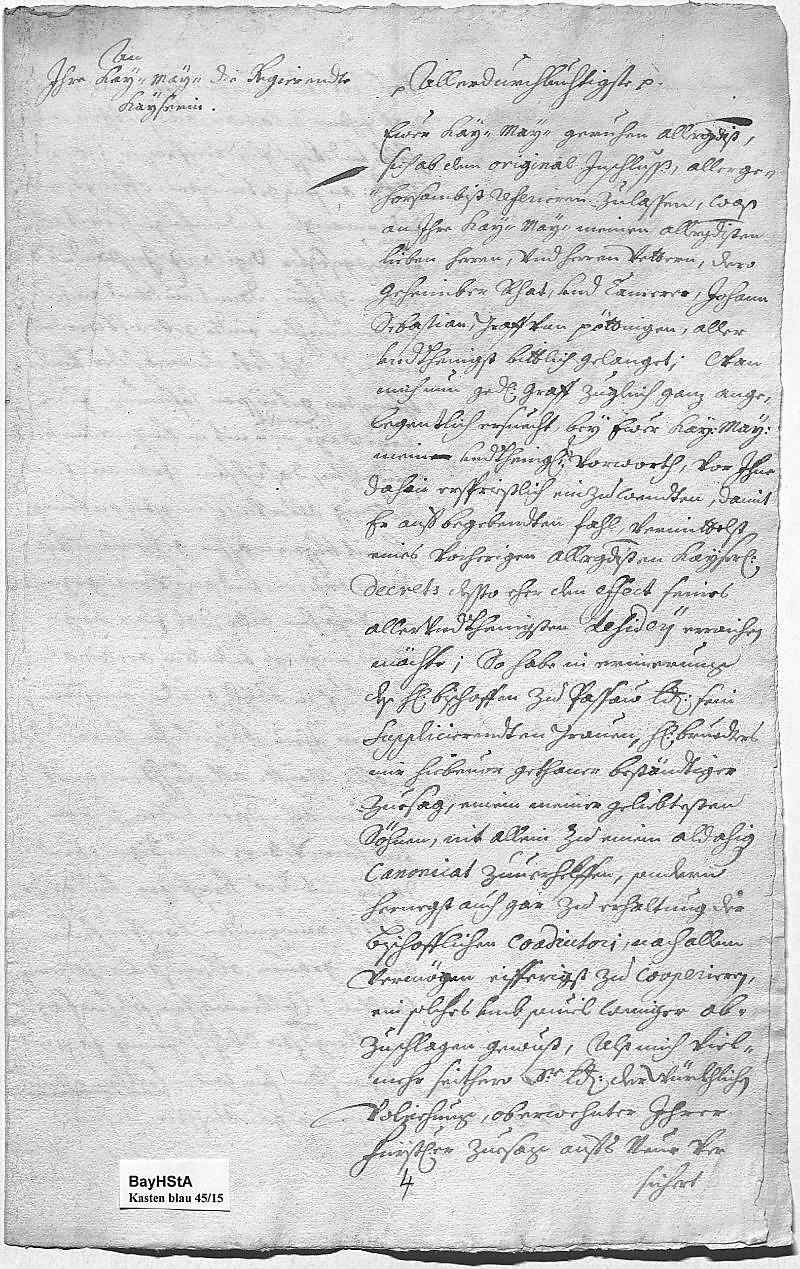 An
Ihre Kay: May: die Regierendte
Kayserin.
Allerdurchleuchtigste p.
Ewer Kay: May: geruhen allergdist,
sich ab dem original Inschluß, allerge-
horsambist referieren zulassen, waß
an Ihre Kay: May: meinen allergdisten
lieben herren, und herren Vettern, dero
geheimber Rhat, und Camerer, Johann
Sebastian, Graff von pöttingen, aller
underthenigst bittlich gelanget; Wan
mich nun gedl: Graff zugleich ganz ange-
legentlich ersuecht bey Ewer Kay: May:
mein underthenigst: Vorworth, vor Ihne
dahin ersprießlich einzuwendten, damit
Er auff begebendten fahl vermittelst
eines vorherigen allergdisten Kayserl:
decrets desto eher den effect seines
allerunderthenigsten desiderij erreichen
möchte; So habe in erinerung
des H: bischoffen zu Passau Ld: sein
supplicierendten Grauen, H: bruders
mir hiebeuor gethaner bestendtiger
Zuesag, einem meiner geliebtesten
Söhnen, nit allein zu einem aldahig
Canonicat zuuerhelffen, sondern
hernegst auch gar zu erhaltung der
Bischofflichen Coadiutori, nach allem
vermögen eifferigst zu cooperieren,
ein solches umb souil weniger ab-
zuschlagen gewust, Alß mich viel-
mehr seithero Sr: Ld: der würkhlichen
Volziehung, oberwehnter Ihrer
fürstl:er Zuesag aufs Neue ver
sichert
4
BayHStA
Kasten blau 45/15